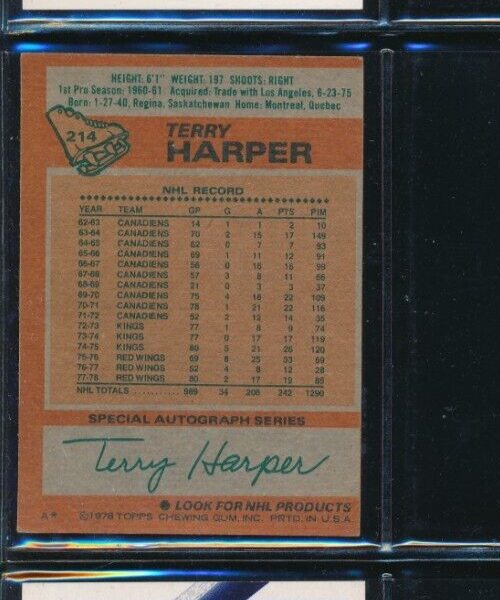 HEIGHT: 6'1" WEIGHT: 197 SHOOTS: RIGHT
1st Pro Season: 1960-61 Acquired: Trade with Los Angeles, 6-23-75
Born: 1-27-40, Regina, Saskatchewan Home: Montreal, Quebec
214
TERRY
HARPER
NHL RECORD
YEAR TEAM GP G A PTS PIM
62-63 CANADIENS 14 1 1 2 10
63-64 CANADIENS 70 2 15 17 149
64-65 CANADIENS 62 0 7 7 93
65-66 CANADIENS 69 1 11 12 91
66-67 CANADIENS 56 0 16 16 99
67-68 CANADIENS 57 3 8 11 66
68-69 CANADIENS 21 0 3 3 37
69-70 CANADIENS 75 4 18 22 109
70-71 CANADIENS 78 1 21 22 116
71-72 CANADIENS 52 2 12 14 35
72-73 KINGS 77 1 8 9 74
73-74 KINGS 77 0 17 17 119
74-75 KINGS 80 5 21 26 120
75-76 RED WINGS 69 8 25 33 59
76-77 RED WINGS 52 4 8 12 28
77-78 RED WINGS 80 2 17 19 85
NHL TOTALS ........... 989 34 208 242 1290
SPECIAL AUTOGRAPH SERIES
Terry Harper
LOOK FOR NHL PRODUCTS
A* ©1978 TOPPS CHEWING GUM, INC. PRTD. IN U.S.A.